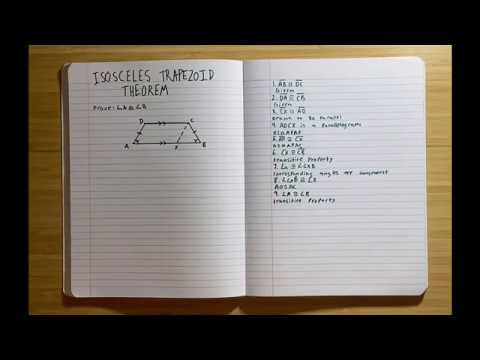 ISOSCELES TRAPEZOID
THEOREM
Prove: ∠A ≅ ∠B
D C
A X B
1. AB ∥ DC
Given
2. DA ≅ CB
Given
3. CX ∥ AD
Drawn to be Parallel
4. ADCX is a Parallelogram
5. ≅
6. CX ≅ CB
transitive Property
7. ∠A ≅ ∠CXB
corresponding angles are congruent
8. ∠CXB ≅ ∠B
9. ∠A ≅ ∠B
transitive Property